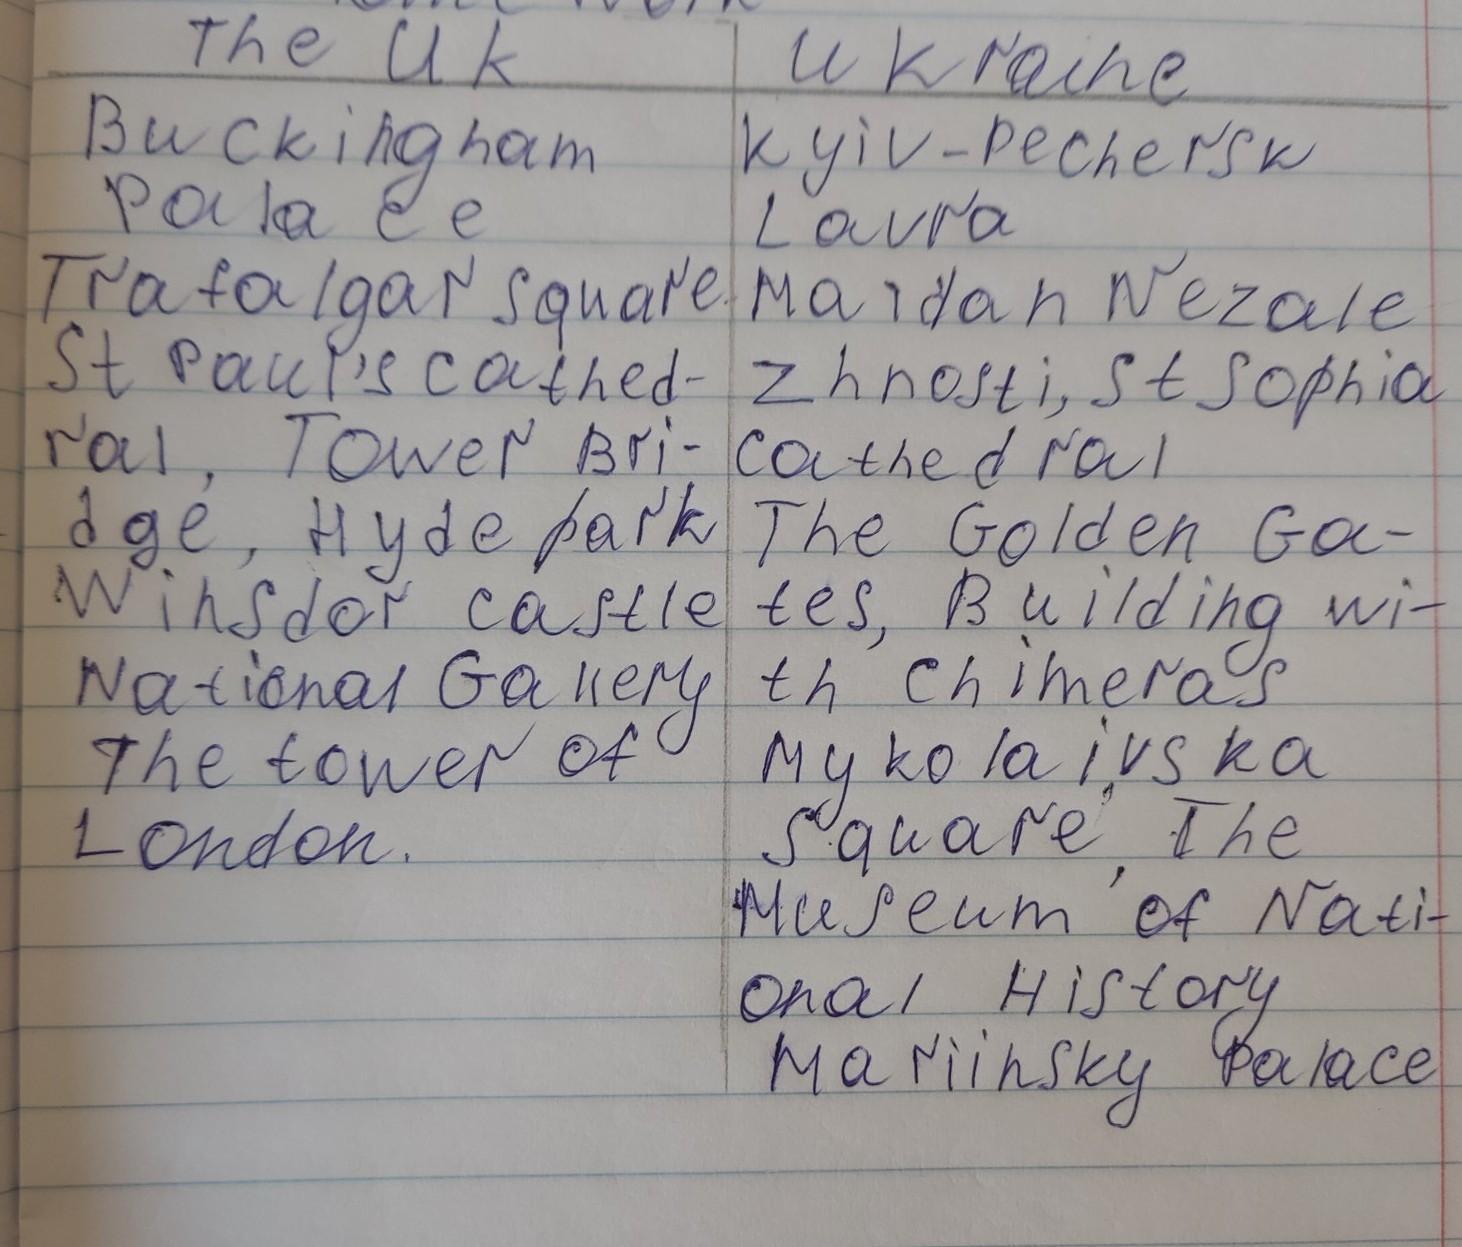 Home work
The Uk
Buckingham
Palace
Trafalgar square
St Paul's cathed-
ral, Tower Bri-
dge, Hyde park
Winsdor castle
National Gallery
The tower of
London.
Ukraine
Kyiv-Pechersk
Lavra
Maidan Nezale
zhnosti, St Sophia
cathedral
The Golden Ga-
tes, Building wi-
th Chimeras
Mykolaivska
Square, The
Museum of Nati-
onal History
Mariinsky Palace